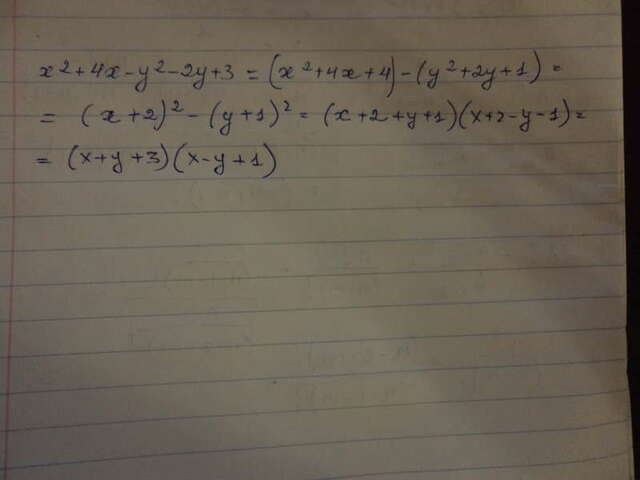 x²+4x-y²-2y+3 = (x²+4x+4)-(y²+2y+1) =
= (x+2)²-(y+1)² = (x+2+y+1)(x+2-y-1) =
= (x+y+3)(x-y+1)